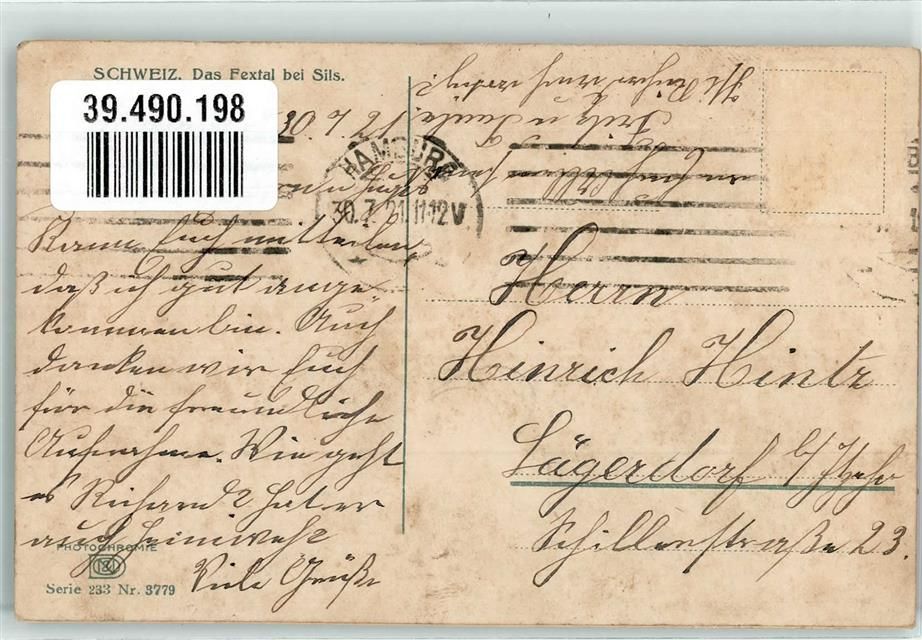 SCHWEIZ. Das Fextal bei Sils.
39.490.198
30.7.21
HAMBURG
30.7.21.11-12V.
Kann Euch mitteilen,
daß ich gut ange-
kommen bin. Auch
danken wir Euch
für die freundliche
Aufnahme. Wie geht
es Richard? hat er
auch heimweh?
Viele Grüße
Fritz u
Herrn
Hinrich Hintz
Lägerdorf b/Itzehoe
Schillerstraße 23.
PHOTOCHROMIE
Serie 233 Nr. 3779